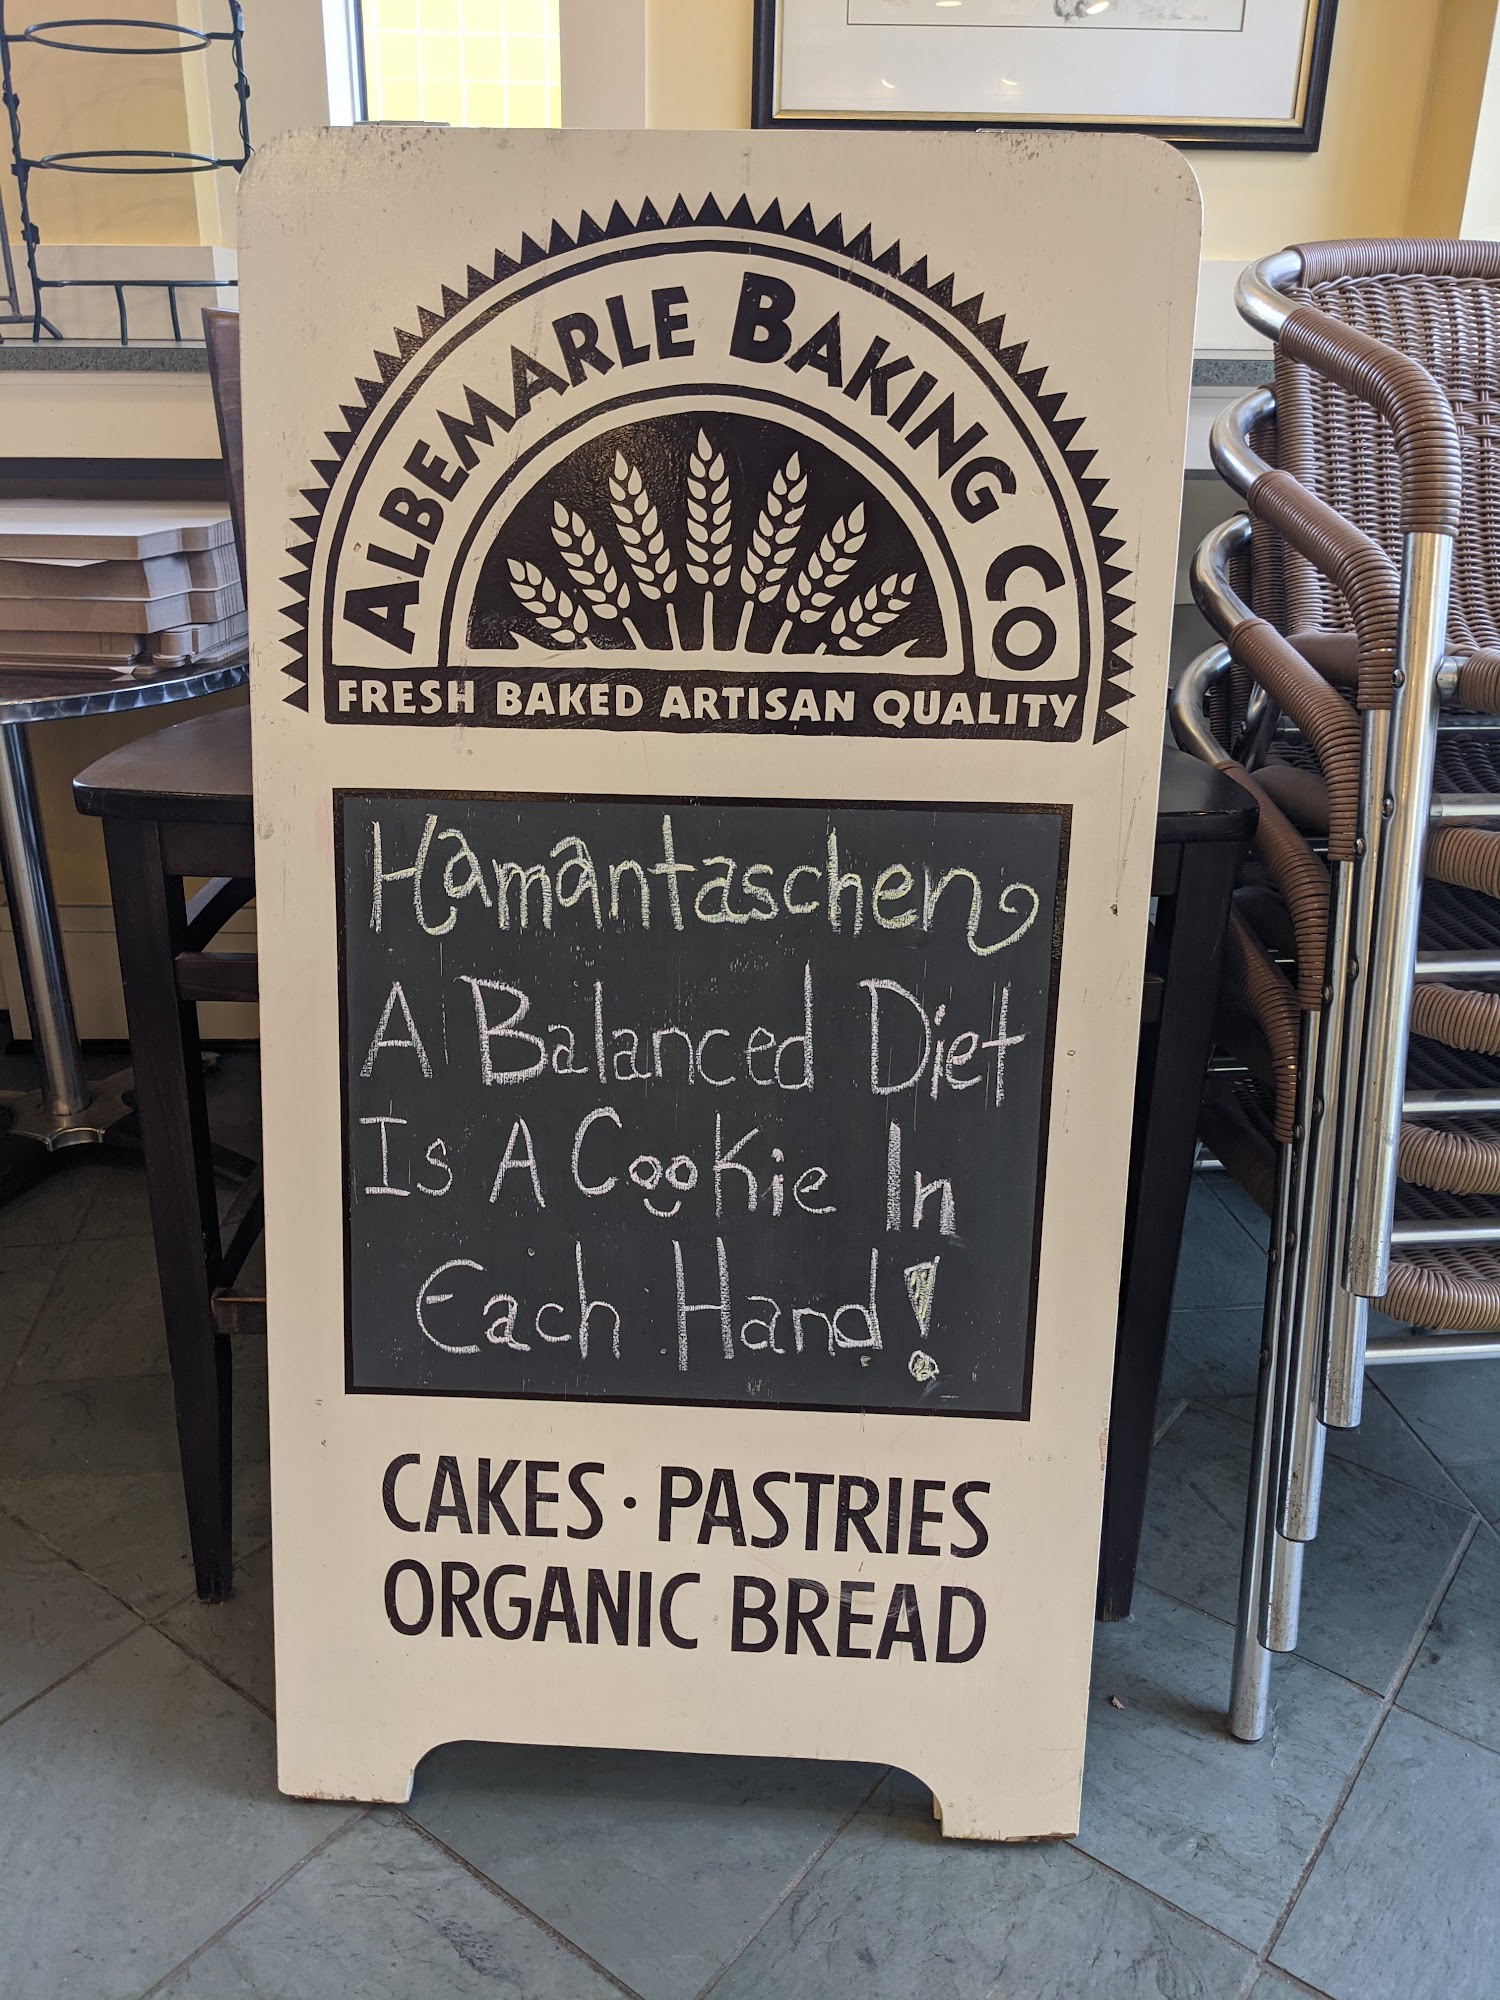 ALBEMARLE BAKING CO
FRESH BAKED ARTISAN QUALITY
Hamantaschen
A Balanced Diet
Is A Cookie In
Each Hand!
CAKES · PASTRIES
ORGANIC BREAD